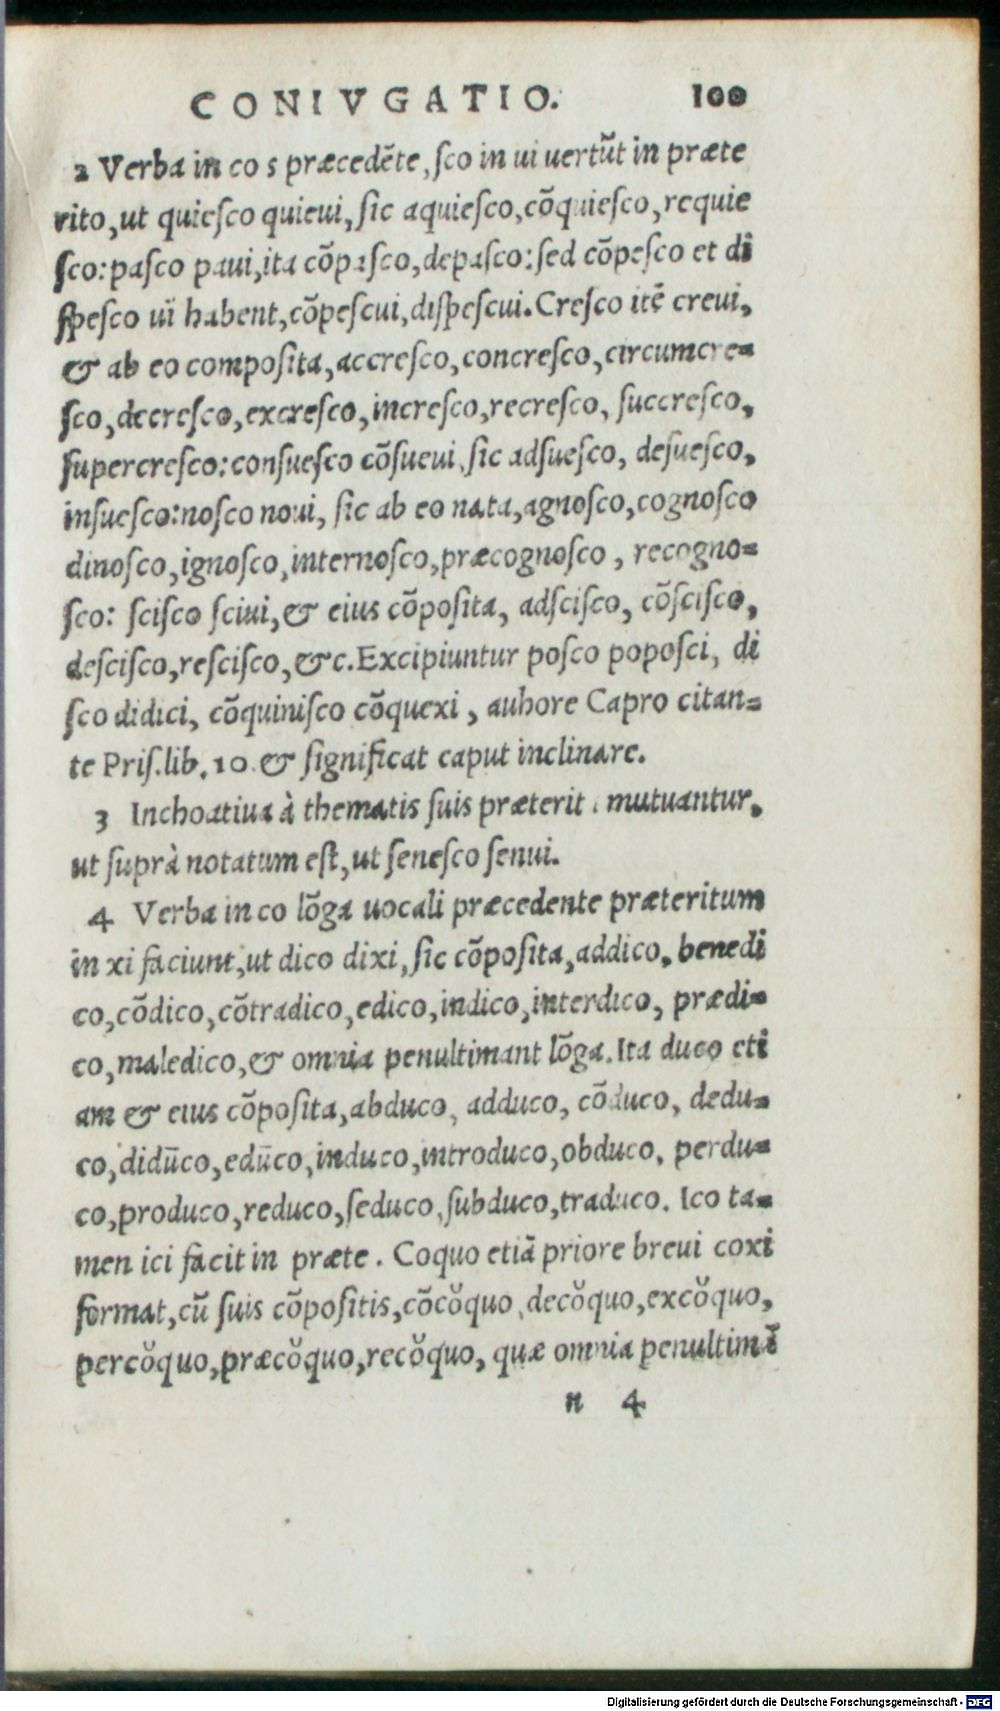 CONIVGATIO. 100
2 Verba in co s præcedẽte, ſco in ui uertũt in præte
rito, ut quieſco quieui, ſic aquieſco, cõquieſco, requie
ſco: paſco paui, ita cõpaſco, depaſco: ſed cõpeſco et di
ſpeſco uï habent, cõpeſcui, diſpeſcui. Creſco itẽ creui,
& ab eo compoſita, accreſco, concreſco, circumcre-
ſco, decreſco, excreſco, increſco, recreſco, ſuccreſco,
ſupercreſco: conſueſco cõſueui, ſic adſueſco, deſueſco,
inſueſco: noſco noui, ſic ab eo nata, agnoſco, cognoſco
dinoſco, ignoſco, internoſco, præcognoſco, recogno-
ſco: ſciſco ſciui, & eius cõpoſita, adſciſco, cõſciſco,
deſciſco, reſciſco, &c. Excipiuntur poſco popoſci, di
ſco didici, cõquiniſco cõquexi, auhore Capro citan-
te Priſ. lib. 10 & ſignificat caput inclinare.
3 Inchoatiua à thematis ſuis præterit mutuantur,
ut ſuprà notatum eſt, ut ſeneſco ſenui.
4 Verba in co lõga uocali præcedente præteritum
in xi faciunt, ut dico dixi, ſic cõpoſita, addico, benedi
co, cõdico, cõtradico, edico, indico, interdico, prædi-
co, maledico, & omnia penultimant lõga. Ita duco eti
am & eius cõpoſita, abduco, adduco, cõduco, dedu-
co, didūco, edūco, induco, introduco, obduco, perdu-
co, produco, reduco, ſeduco, ſubduco, traduco. Ico ta-
men ici facit in præte. Coquo etiã priore breui coxi
format, cũ ſuis cõpoſitis, cõcŏquo, decŏquo, excŏquo,
percŏquo, præcŏquo, recŏquo, quæ omnia penultimã
n 4
Digitalisierung gefördert durch die Deutsche Forschungsgemeinschaft - DFG